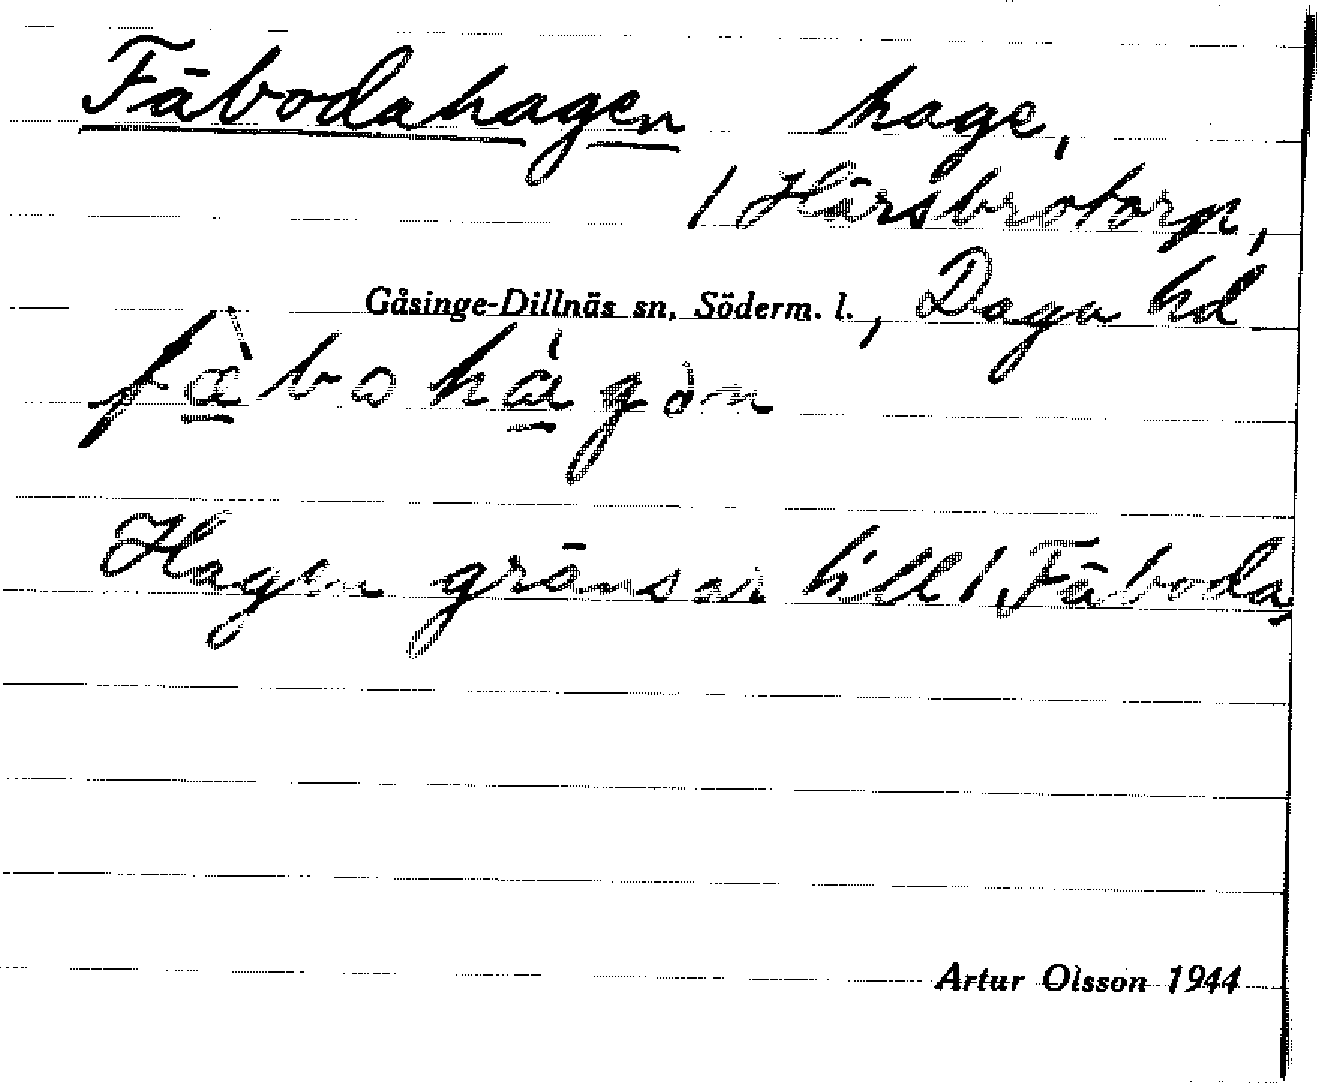 Fäbodahagen hage,
/ Härsbrotorp,
Gåsinge-Dillnäs sn, Söderm. l., Daga hd
fä̀bohágən
Hagen gränsar till / Fäboda,
Artur Olsson 1944